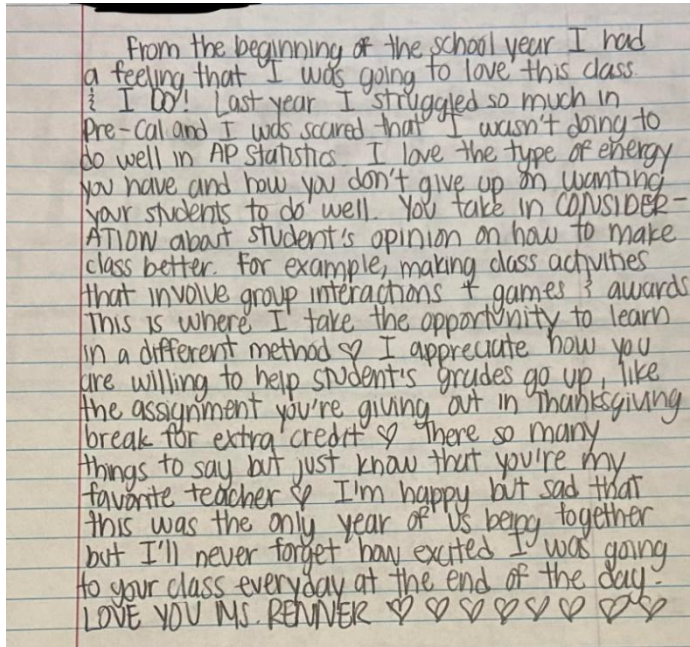 From the beginning of the school year I had
a feeling that I was going to love this class.
& I DO! Last year I struggled so much in
Pre-Cal and I was scared that I wasn't doing to
do well in AP Statistics. I love the type of energy
you have and how you don't give up on wanting
your students to do well. You take in CONSIDER-
ATION about student's opinion on how to make
class better. For example, making class activities
that involve group interactions + games & awards
This is where I take the opportunity to learn
in a different method ♡ I appreciate how you
are willing to help student's grades go up, like
the assignment you're giving out in Thanksgiving
break for extra credit ♡ There so many
things to say but just know that you're my
favorite teacher ♡ I'm happy but sad that
this was the only year of us being together
but I'll never forget how excited I was going
to your class everyday at the end of the day.
LOVE YOU MS. RENNER ♡ ♡ ♡ ♡ ♡ ♡ ♡ ♡